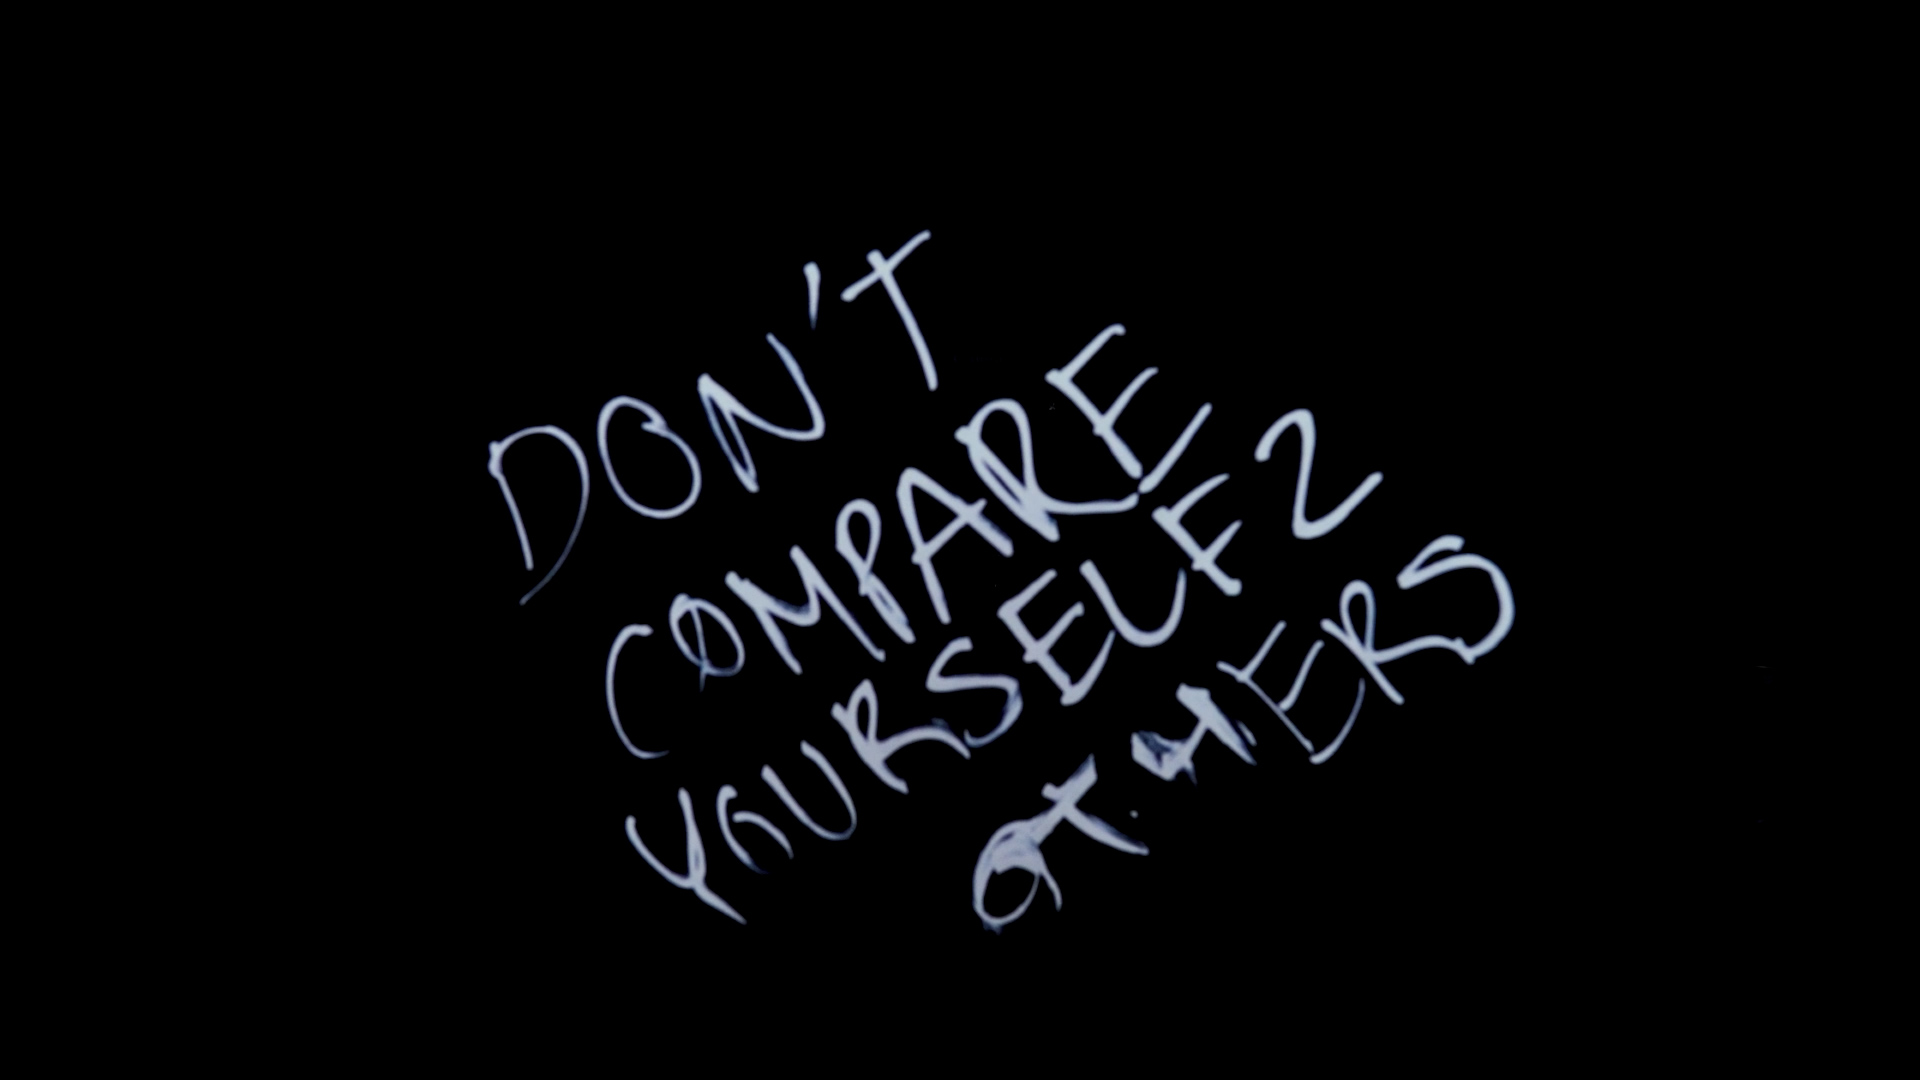 DON'T
COMPARE
YOURSELF 2
OTHERS